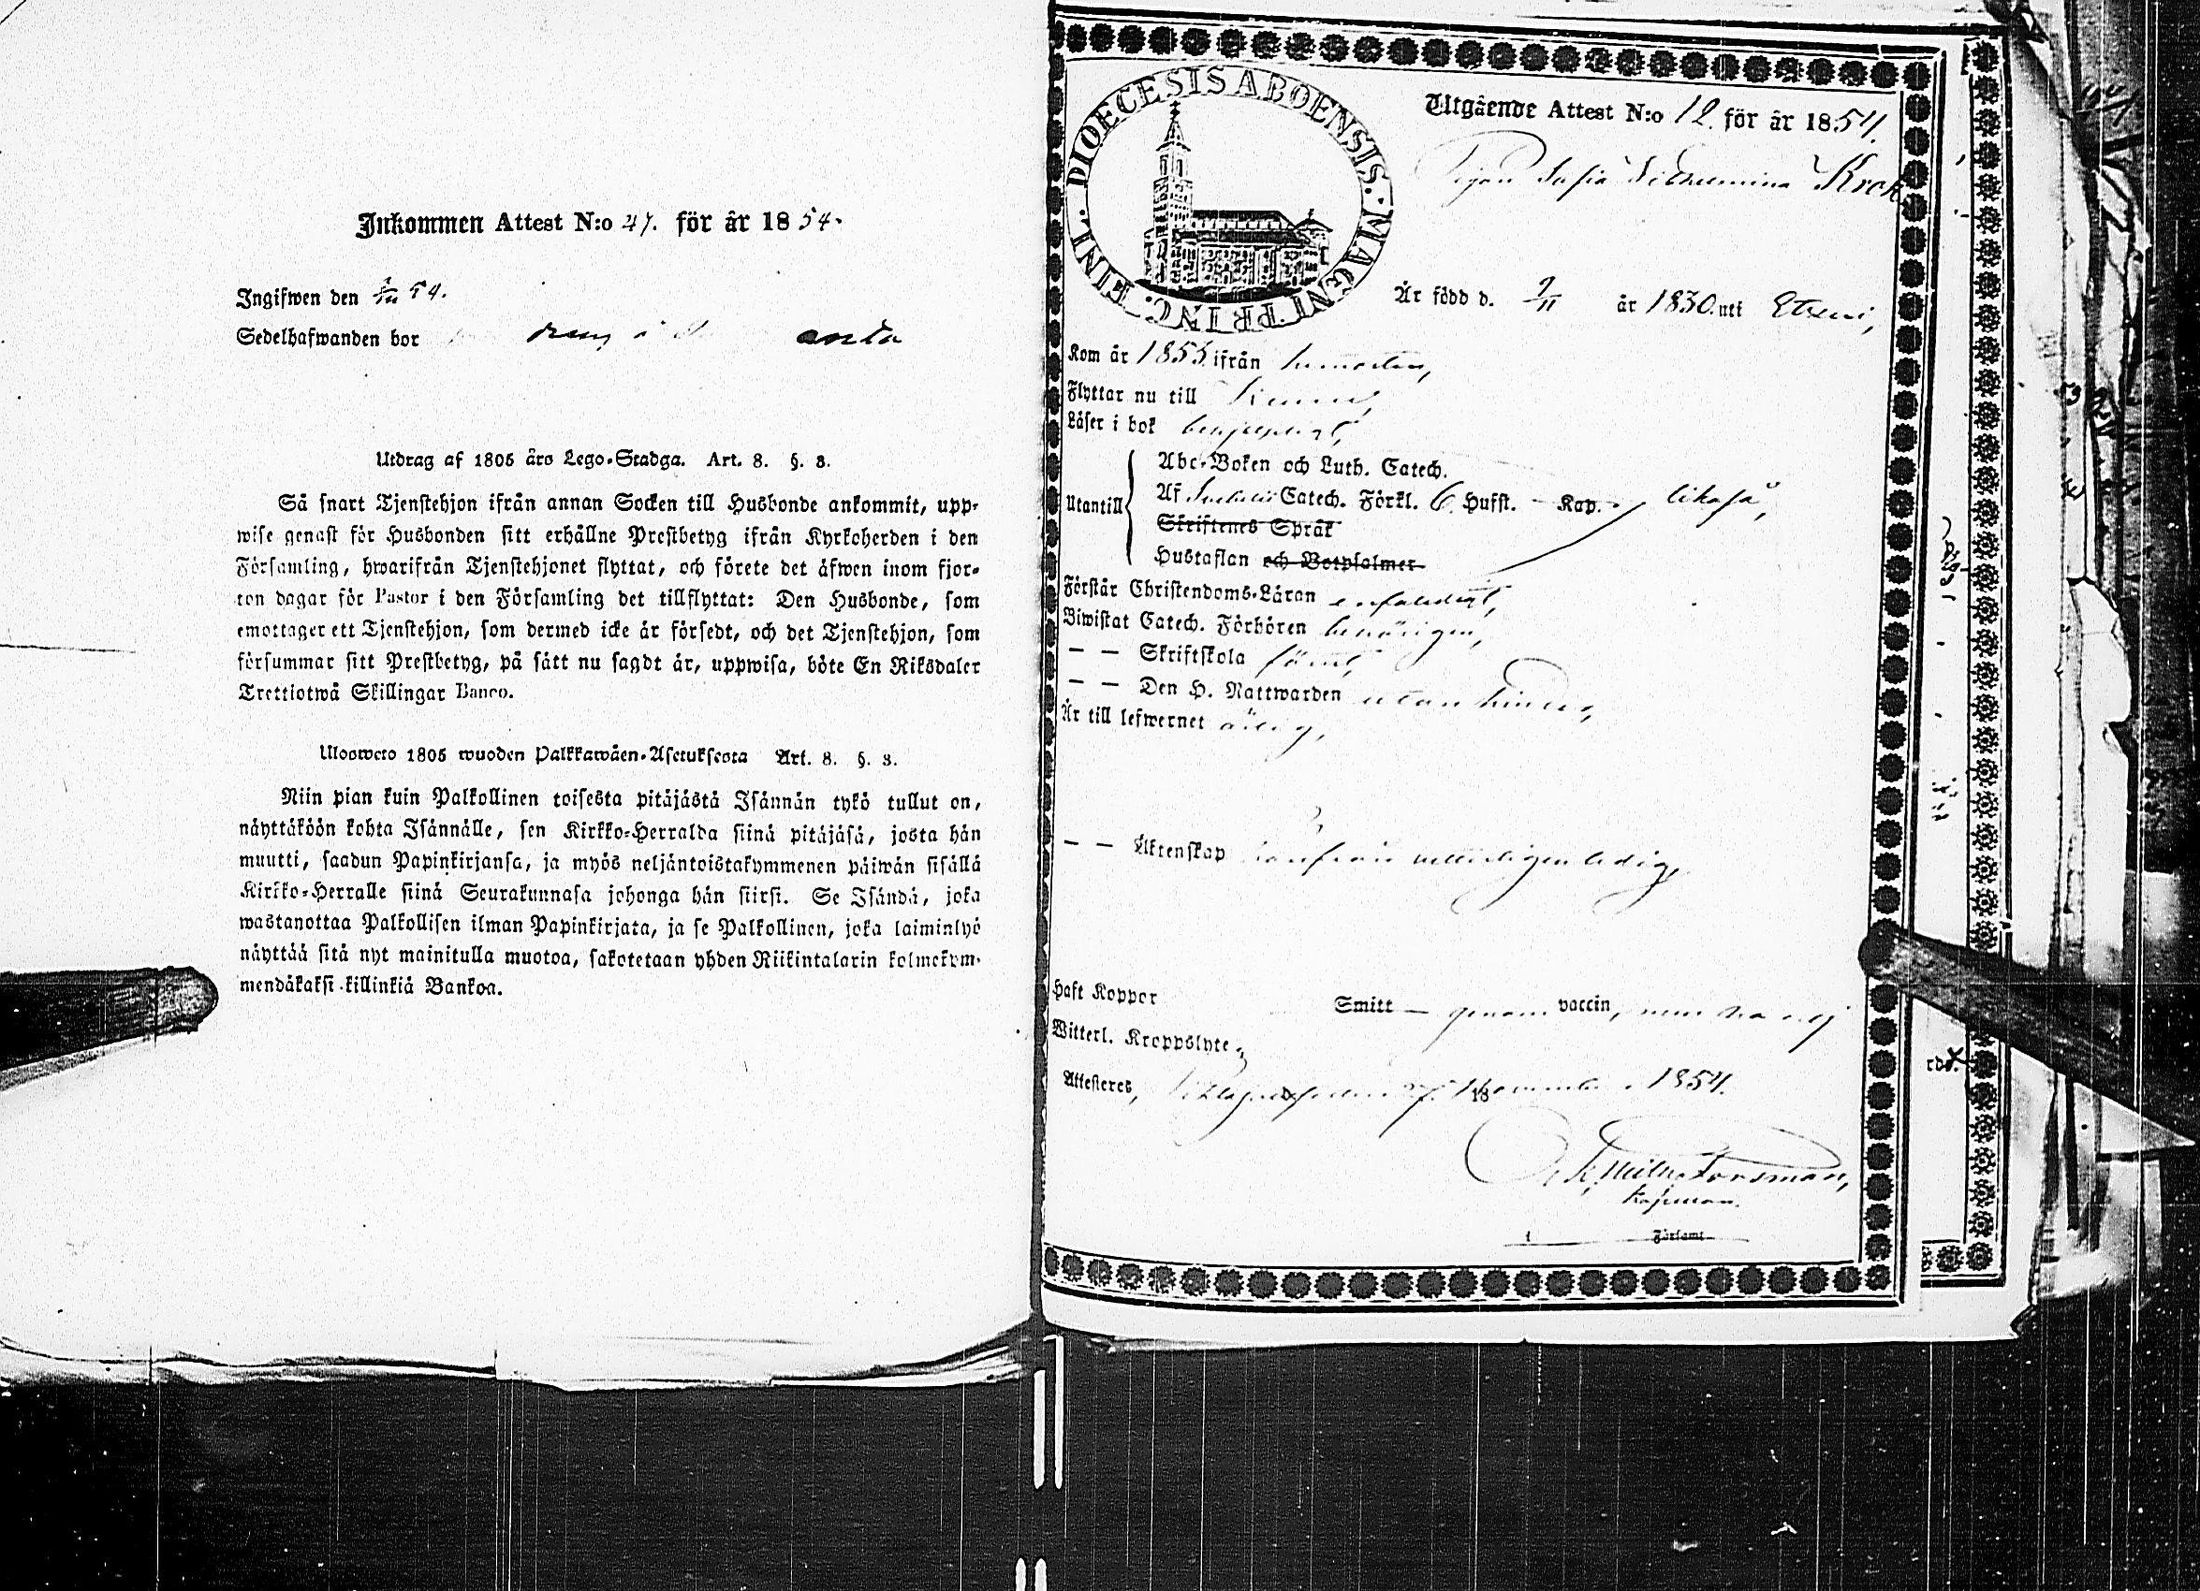 Inkommen Attest N:o 47. för år 1854.
Ingifwen den 54.
Sedelhafwanden bor
Utdrag af 1805 års Lego-Stadga. Art. 8. §. 3.
Så snart Tjenstehjon ifrån annan Socken till Husbonde ankommit, upp-
wise genast för Husbonden sitt erhållne Prestbetyg ifrån Kyrkoherden i den
Församling, hwarifrån Tjenstehjonet flyttat, och förete det äfwen inom fjor-
ton dagar för Pastor i den Församling det tillflyttat: Den Husbonde, som
emottager ett Tjenstehjon, som dermed icke är försedt, och det Tjenstehjon, som
försummar sitt Prestbetyg, på sätt nu sagdt är, uppwisa, böte En Riksdaler
Trettiotwå Skillingar Banco.
Ulosweto 1805 wuoden Palkkawäen-Asetuksesta Art. 8. §. 3.
Niin pian kuin Palkollinen toisesta pitäjästä Isännän tykö tullut on,
näyttäköön kohta Isännälle, sen Kirkko-Herralda siinä pitäjäsä, josta hän
muutti, saadun Papinkirjansa, ja myös neljäntoistakymmenen päiwän sisällä
Kirkko-Herralle siinä Seurakunnasa johonga hän siirsi. Se Isändä, joka
wastanottaa Palkollisen ilman Papinkirjata, ja se Palkollinen, joka laiminlyö
näyttää sitä nyt mainitulla muotoa, sakotetaan yhden Riikintalarin kolmekym-
mendäkaksi killinkiä Bankoa.
DIOECESIS ABOENSIS. MAGNI PRINC. FINL.
Utgående Attest N:o 12. för år 1854.
Pigan Sofia Wilhelmina Krok
Är född d. 9/11 år 1830. uti
Kom år 1853 ifrån hemorten,
Flyttar nu till
Läser i bok
Utantill
Abc-Boken och Luth. Catech.
Af Catech. Förkl. 6 Hufst. — Kap. likaså,
Skriftenes Språk
Hustaflan och Botpsalmer
Förstår Christendoms-Läran enfaldigt,
Biwistat Catech. Förhören behörigen,
— — Skriftskola
— — Den H. Nattwarden utan hinder,
Är till lefwernet ärlig,
— — Äktenskap härifrån vetterligen ledig,
Haft Koppor Smitt — genom vaccin,
Witterl. Kroppslyte
Attesteres, 27 November 1854.
18
Forsman,
Kapellan.
i Församl.